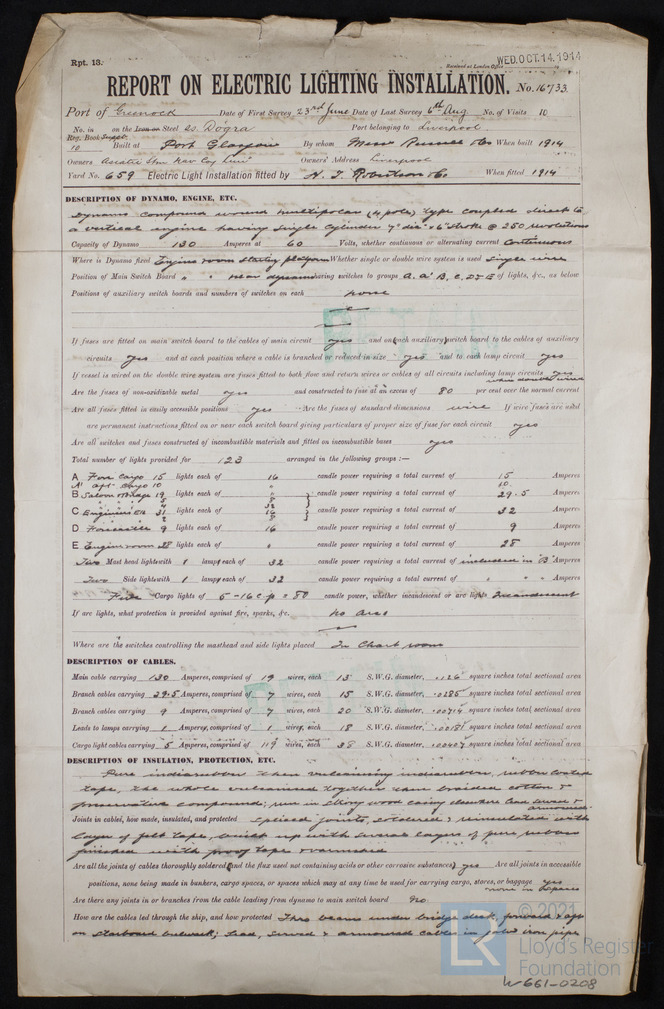 Rpt. 13.
Received at London Office WED. OCT. 14. 1914
REPORT ON ELECTRIC LIGHTING INSTALLATION. No. 16733
Port of Greenock Date of First Survey 23rd June Date of Last Survey 6th Aug No. of Visits 10
No. in on the Iron or Steel ss. Dogra Port belonging to Liverpool
Reg. Book Suppt.
10 Built at Port Glasgow By whom Messrs Russell & Co. When built 1914
Owners Asiatic Stm Nav Coy Limd Owners' Address Liverpool
Yard No. 659 Electric Light Installation fitted by H. T. Robertson & Co. When fitted 1914
DESCRIPTION OF DYNAMO, ENGINE, ETC.
Dynamo compound wound multipolar (4 pole) type coupled direct to
a vertical engine having single cylinder 7" dia x 6" stroke @ 250 revolutions
Capacity of Dynamo 130 Amperes at 60 Volts, whether continuous or alternating current Continuous
Where is Dynamo fixed Engine room Starting platform Whether single or double wire system is used Single wire
Position of Main Switch Board " " near dynamo having switches to groups A. A' B, C, D & E of lights, &c., as below
Positions of auxiliary switch boards and numbers of switches on each none
If fuses are fitted on main switch board to the cables of main circuit yes and on each auxiliary switch board to the cables of auxiliary
circuits yes and at each position where a cable is branched or reduced in size yes and to each lamp circuit yes
If vessel is wired on the double wire system are fuses fitted to both flow and return wires or cables of all circuits including lamp circuits yes
where double wired
Are the fuses of non-oxidizable metal yes and constructed to fuse at an excess of 80 per cent over the normal current
Are all fuses fitted in easily accessible positions yes Are the fuses of standard dimensions wire If wire fuses are used
are permanent instructions fitted on or near each switch board giving particulars of proper size of fuse for each circuit yes
Are all switches and fuses constructed of incombustible materials and fitted on incombustible bases yes
Total number of lights provided for 123 arranged in the following groups :—
A Fore Cargo 15 lights each of 16 candle power requiring a total current of 15 Amperes
A' aft Cargo 10 " 10
B Saloon & Bridge 19 lights each of " candle power requiring a total current of 29.5 Amperes
C Engineers Etc 31 lights each of 16 candle power requiring a total current of 32 Amperes
D Forecastle 9 lights each of 16 candle power requiring a total current of 9 Amperes
E Engine room 28 lights each of " candle power requiring a total current of 28 Amperes
Two Mast head lights with 1 lamps each of 32 candle power requiring a total current of included in 'B' Amperes
Two Side lights with 1 lamps each of 32 candle power requiring a total current of " " " Amperes
Five Cargo lights of 5 - 16 c.p = 80 candle power, whether incandescent or arc lights Incandescent
If arc lights, what protection is provided against fire, sparks, &c. No Arcs
Where are the switches controlling the masthead and side lights placed In Chart room
DESCRIPTION OF CABLES.
Main cable carrying 130 Amperes, comprised of 19 wires, each 13 S.W.G. diameter, .126 square inches total sectional area
Branch cables carrying 29.5 Amperes, comprised of 7 wires, each 15 S.W.G. diameter, .0285 square inches total sectional area
Branch cables carrying 9 Amperes, comprised of 7 wires, each 20 S.W.G. diameter, .00714 square inches total sectional area
Leads to lamps carrying 1 Amperes, comprised of 1 wires, each 18 S.W.G. diameter, .0018 square inches total sectional area
Cargo light cables carrying 5 Amperes, comprised of 119 wires, each 38 S.W.G. diameter, .00407 square inches total sectional area
DESCRIPTION OF INSULATION, PROTECTION, ETC.
Pure indiarubber then vulcanising indiarubber, rubber coated
tape, the whole vulcanised together then braided cotton &
preservative compound; run in strong wood casing elsewhere lead served &
armoured
Joints in cables, how made, insulated, and protected Spliced joints, soldered & reinsulated with
layer of felt tape, built up with several layers of pure rubber
finished with proof tape & varnished
Are all the joints of cables thoroughly soldered and the flux used not containing acids or other corrosive substances yes Are all joints in accessible
positions, none being made in bunkers, cargo spaces, or spaces which may at any time be used for carrying cargo, stores, or baggage yes
none in spaces
Are there any joints in or branches from the cable leading from dynamo to main switch board No
How are the cables led through the ship, and how protected Thro beams under bridge deck, forward & aft
on starboard bulwark; lead, served & armoured cables in galvd iron pipe
© 2021
LR Lloyd's Register
Foundation
W661-0208